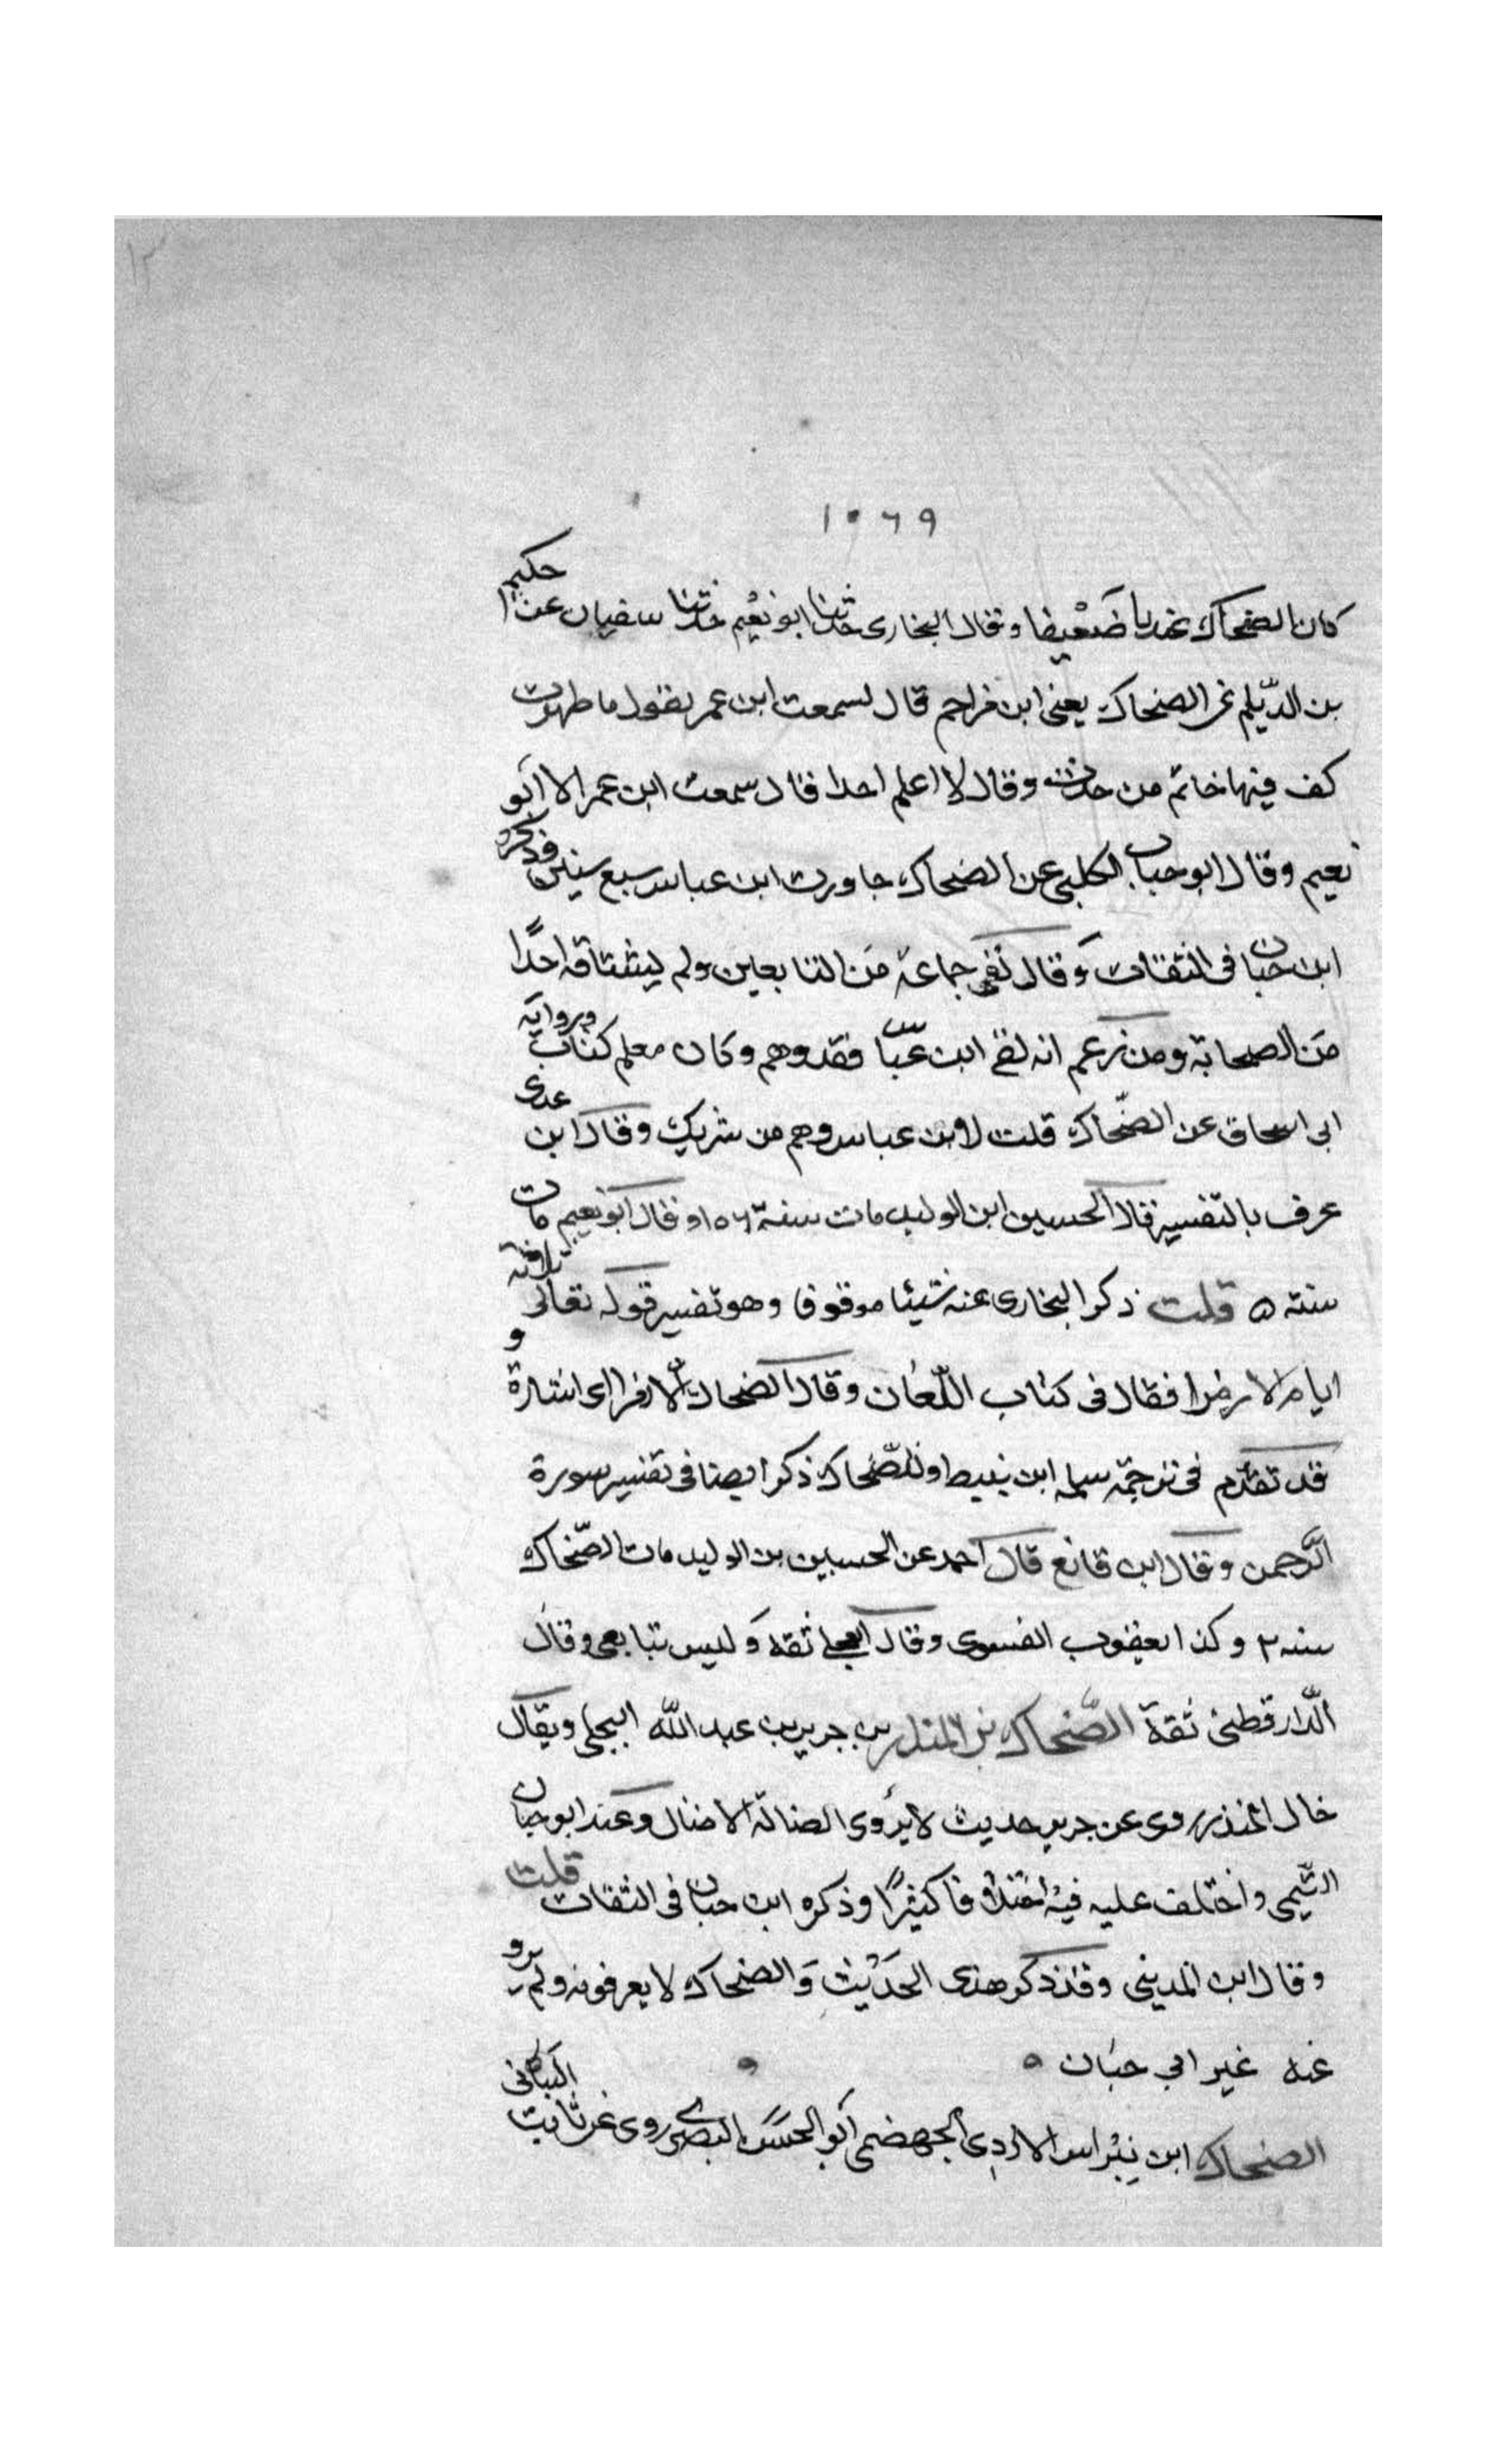 ١٢
١٠٦٩
كان الضحاك عندنا ضعيفا وقال البخارى حدثنا ابو نعيم حدثنا سفيان عن حكيم
بن الديلم عن الضحاك يعنى ابن مزاحم قال سمعت ابن عمر يقول ما طهرت
كف فيها خاتم من حديث وقال لا اعلم احدا قال سمعت ابن عمر الا ابو
نعيم وقال ابو حباب الكلبى عن الضحاك جاورت ابن عباس سبع سنين وذكره
ابن حبان فى الثقات وقال لقى جماعة من التابعين ولم يشافه احدًا
من الصحابة ومن زعم انه لقى ابن عبّاس فقد وهم وكان معلم كتاب ورواية
ابى اسحاق عن الضّحاك قلت لابن عباس وهم من شريك وقال ابن عدى
عرف بالتفسير قال الحسين ابن الوليد مات سنة ١٥٦ وقال ابو نعيم مات
سنته ٥ قلت ذكر البخارى عنه شيئا موقوفا وهو تفسير قوله تعالى ثلاثة
ايام الا رمزا فقال فى كتاب اللّعان وقال الضحاك الا رمزا اى اشارة و
قد تقدّم فى ترجمة سلمه ابن نبيط وللضّحاك ذكر ايضا فى تفسير سورة
الرّحمن وقال ابن قانع قال احمد عن الحسين بن الوليد مات الضّحاك
سنه ٢ وكذا يعقوب الفسوى وقال العجلى ثقه وليس بتابعى وقال
الدّارقطنى ثقة الضّحاك بن المنذر بن جرير بن عبد الله البجلى ويقال
خال المنذر روى عن جرير حديث لا يؤوى الضالة الا ضال وعنه ابو حيان
التّيمى واختلف عليه فيه اختلافا كثيرًا وذكره ابن حبان فى الثقات قلت
وقال ابن المدينى وقد ذكر هذى الحديث والضحاك لا يعرفونه ولم يرو
عنه غير ابى حبان ٥
الضحاك ابن نبراس الازدى الجهضمى ابو الحسن البصرى روى عن ثابت البنانى